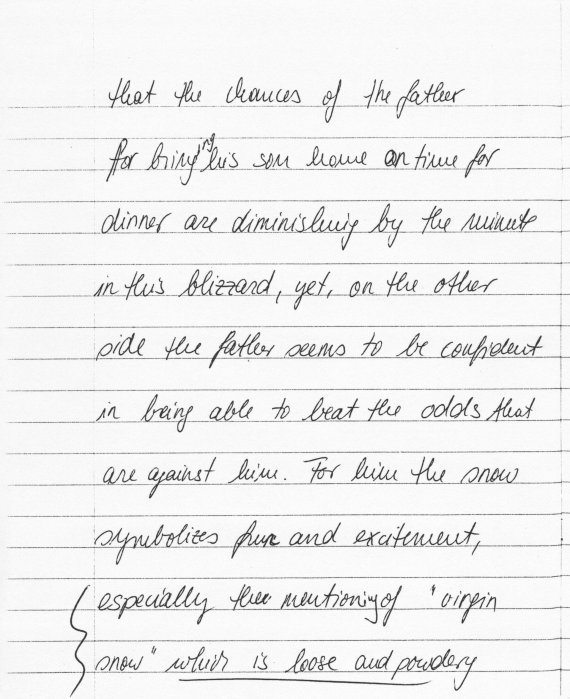 that the chances of the father
for bringing his son home on time for
dinner are diminishing by the minute
in this blizzard, yet, on the other
side the father seems to be confident
in being able to beat the odds that
are against him. For him the snow
symbolizes fun and excitement,
especially the mentioning of "virgin
snow" which is loose and powdery